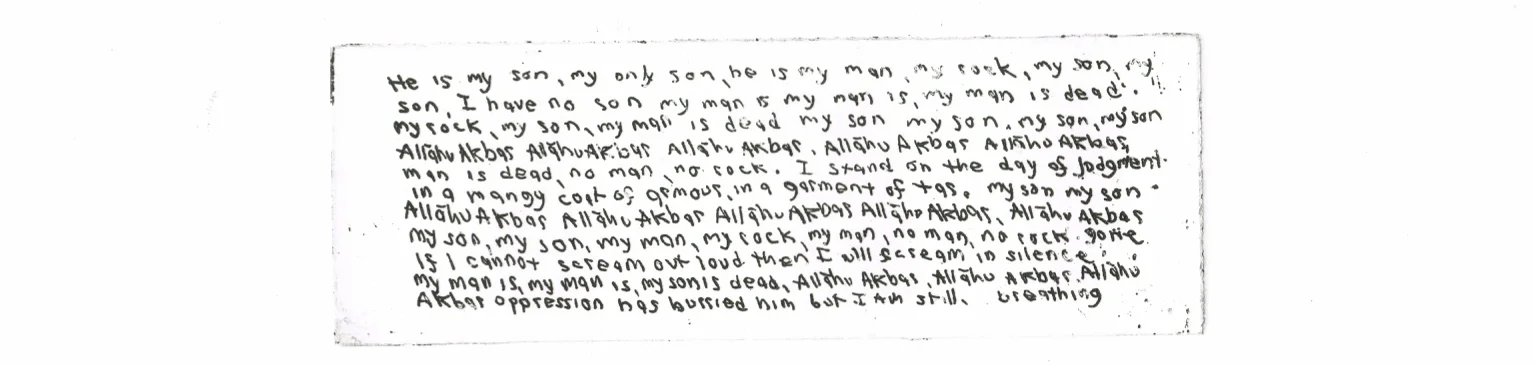 He is my son, my only son, he is my man, my rock, my son, my
son, I have no son my man is my man is, my man is dead.
my rock, my son, my man is dead my son my son, my son, my son
Allāhu Akbar Allāhu Akbar Allāhu Akbar, Allāhu Akbar Allāhu Akbar,
man is dead, no man, no rock. I stand on the day of Judgment.
in a mangy coat of armour, in a garment of tar. my son my son.
Allāhu Akbar Allāhu Akbar Allāhu Akbar Allāhu Akbar, Allāhu Akbar
my son, my son, my man, my rock, my man, no man, no rock. gone
If I cannot scream out loud then I will scream in silence.
my man is, my man is, my son is dead, Allāhu Akbar, Allāhu Akbar, Allāhu
Akbar oppression has burried him but I Am still. breathing